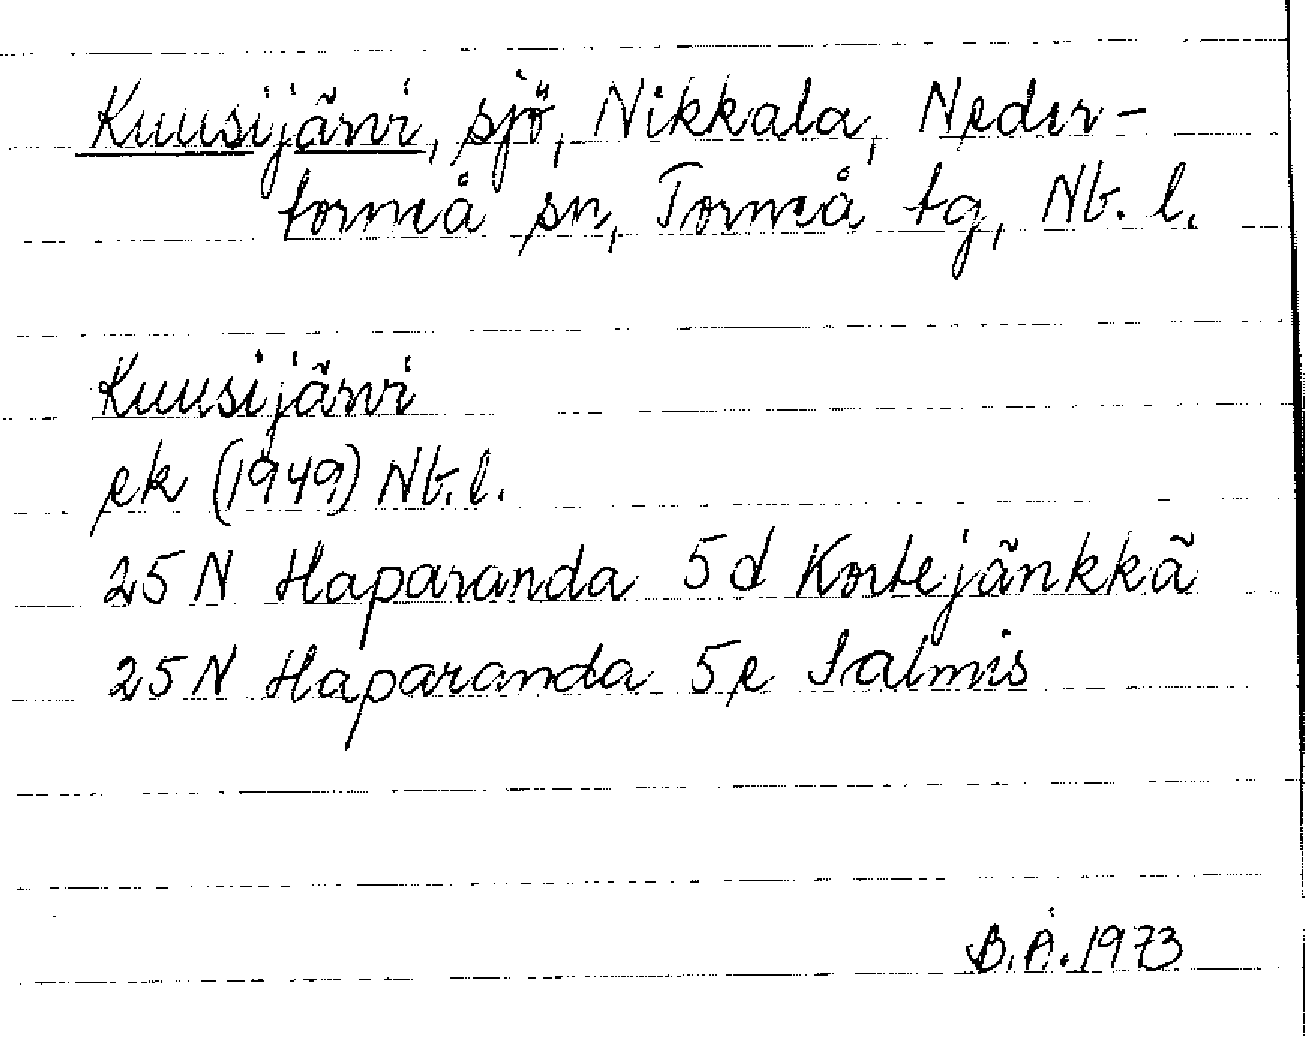 Kuusijärvi, sjö, Nikkala, Neder-
torneå sn, Torneå tg, Nb. l.
Kuusijärvi
ek (1949) Nb. l.
25 N Haparanda 5d Kortejänkkä
25 N Haparanda 5e Salmis
B.Å. 1973